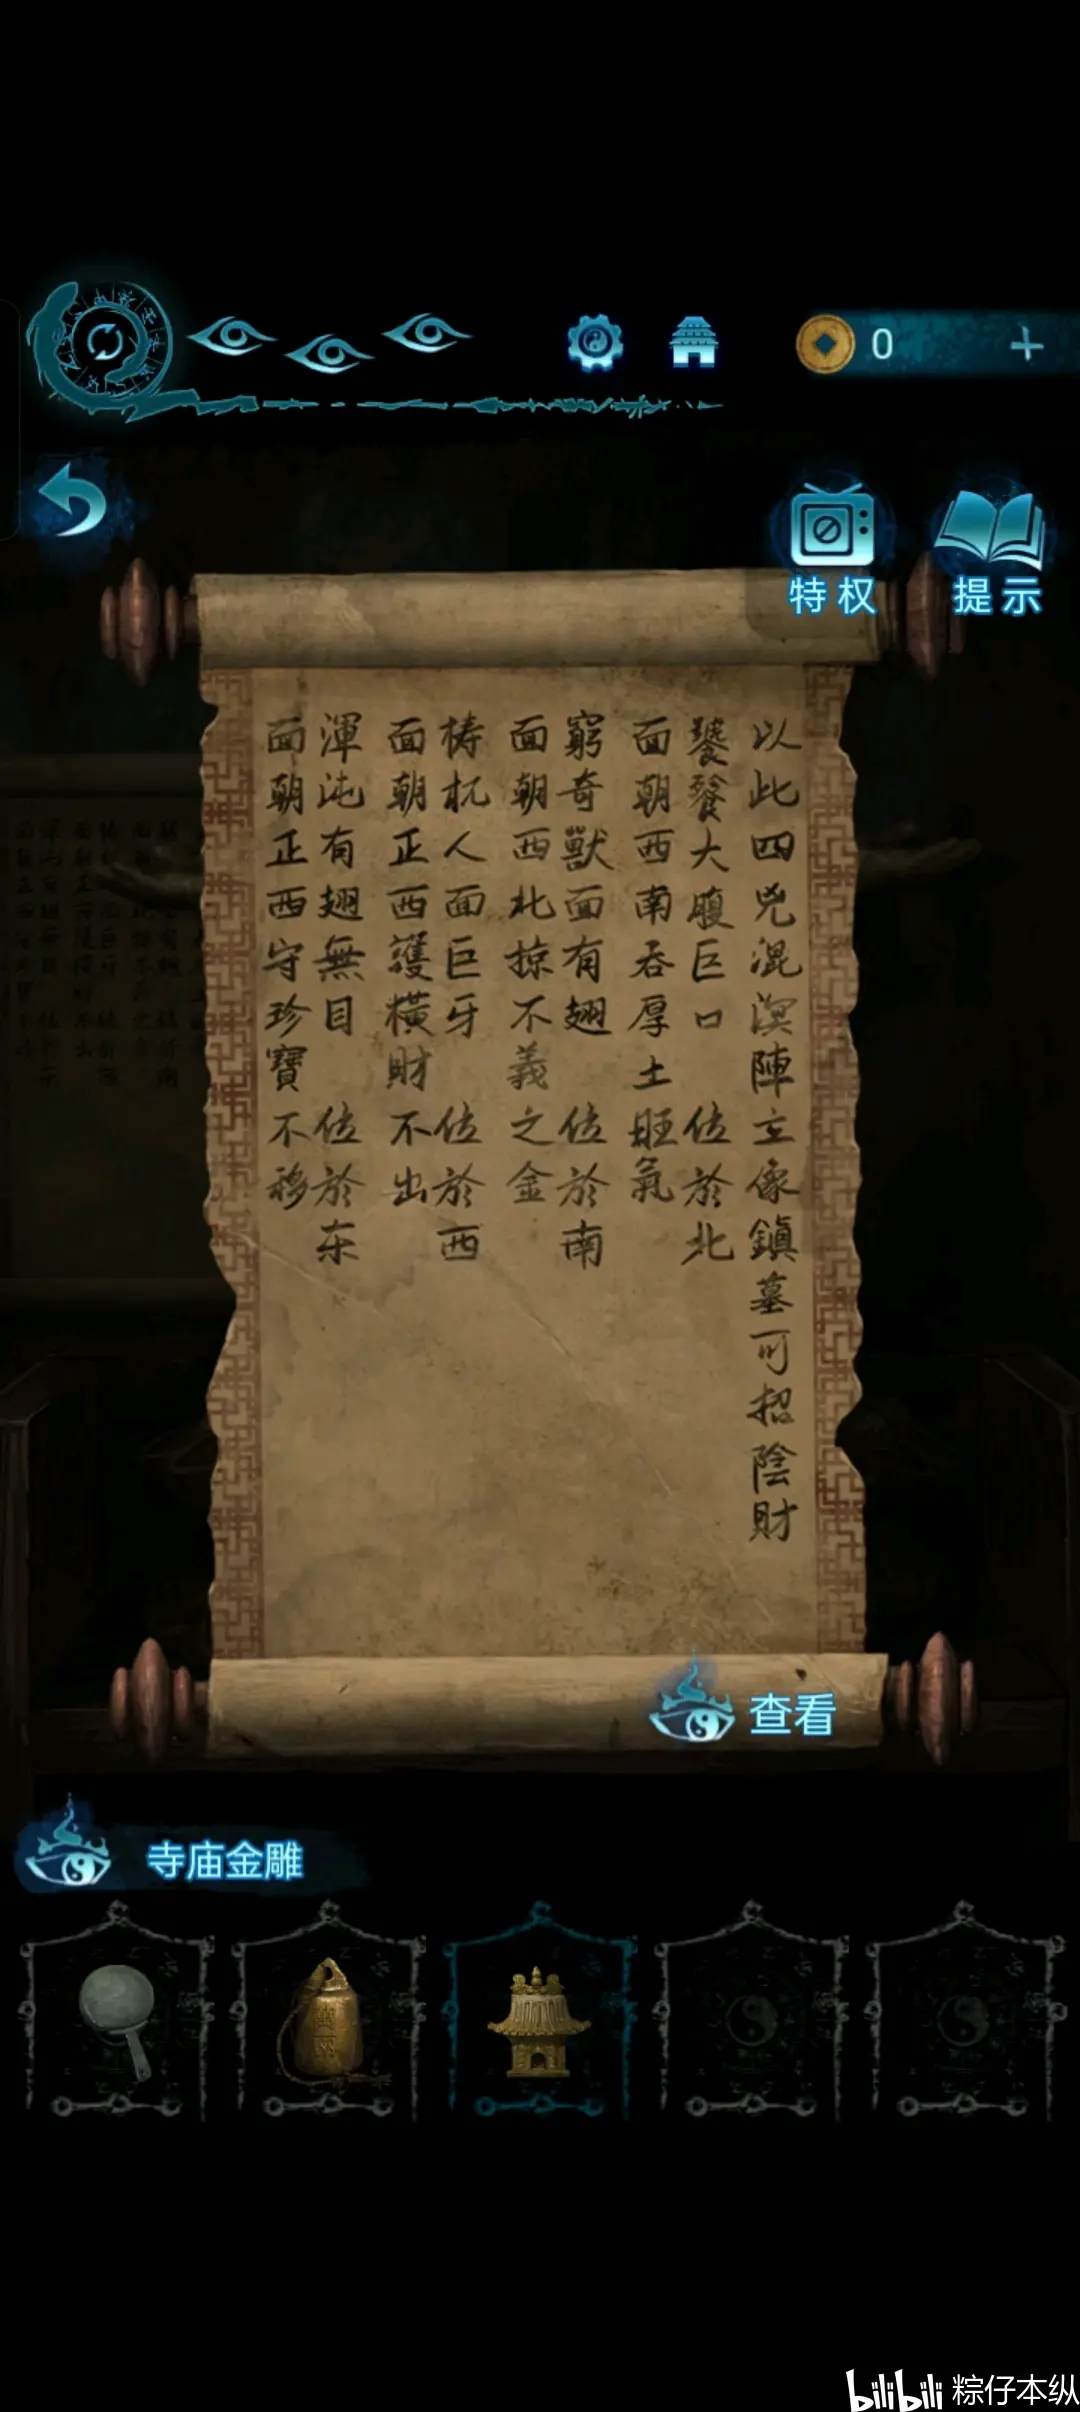 0
特权
提示
以此四兇混溟陣立像鎮墓可招陰財
饕餮大腹巨口 位於北
面朝西南吞厚土旺氣
窮奇獸面有翅 位於南
面朝西北掠不義之金
梼杌人面巨牙 位於西
面朝正西護橫財不出
渾沌有翅無目 位於东
面朝正西守珍寶不移
查看
寺庙金雕
bilibili 粽仔本纵